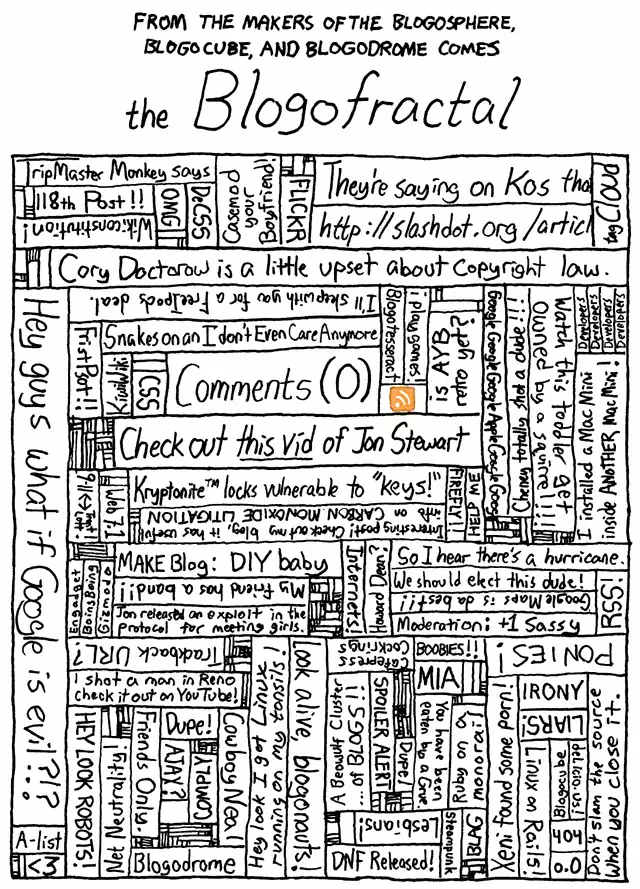 FROM THE MAKERS OF THE BLOGOSPHERE,
BLOGOCUBE, AND BLOGODROME COMES
the Blogofractal
TripMaster Monkey says
118th Post!!
Wikiconstitution!
OMG
DeCSS
Casemod
your
Boyfriend!
FLICKR
They're saying on Kos tha
http://slashdot.org/articl
tag Cloud
Cory Doctorow is a little upset about copyright law.
Hey guys what if Google is evil?!?
I'll sleep with you for a FreeIpods deal.
Snakes on an I don't Even Care Anymore
First Post!!
KiwiWiki
CSS
Comments (0)
Blogotesseract
i play games!
is AYB
retro yet?
Google Google Google Apple Google Google
Cheney totally shot a dude!!!
Watch this toddler get
Owned by a squirrel!!!
Developers
Developers
Developers
Developers
I installed a Mac Mini
inside ANOTHER Mac Mini!
Check out this vid of Jon Stewart
Web 7.1
Kryptonite™ locks vulnerable to "keys!"
Interesting post! Check out my blog, it has useful
info on CARBON MONOXIDE LITIGATION
FIREFLY!!
HELP ME
Engadget
BoingBoing
Gizmodo
MAKE Blog: DIY baby
My friend has a band!!
Jon released an exploit in the
protocol for meeting girls.
Internets!
Howard Dean?
So I hear there's a hurricane.
We should elect this dude!
Google Maps is da best!!
Moderation: +1 Sassy
RSS!
Trackback URL?
I shot a man in Reno
check it out on YouTube!
HEY LOOK ROBOTS!
Net Neutrality!
Friends Only.
Dupe!
AJAX?
COMPLY!
Cowboy Neal
Blogodrome
Hey look I got Linux
running on my tonsils!
Look alive, blogonauts!
Cafepress
Cockrings
BOOBIES!!
MIA
PONIES!
A Beowulf Cluster
... of BLOGS!!
SPOILER ALERT!
Dupe!
You have been
eaten by a Grue
Ruby on a
monorail
Lesbians!
DNF Released!
Steampunk
BLAG
Xeni found some porn!
IRONY
LIARS!
Linux on Rails!
Blogocube
del.icio.us!
404
0.0
Don't slam the source
when you close it.
A-list
<3